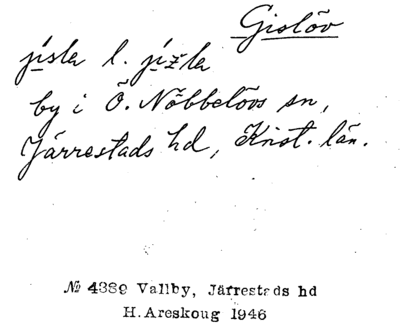 Gislöv
jisla l. jizla
by i Ö. Nöbbelövs sn,
Järrestads hd, Krist. län.
№ 4389 Vallby, Järrestads hd
H. Areskoug 1946